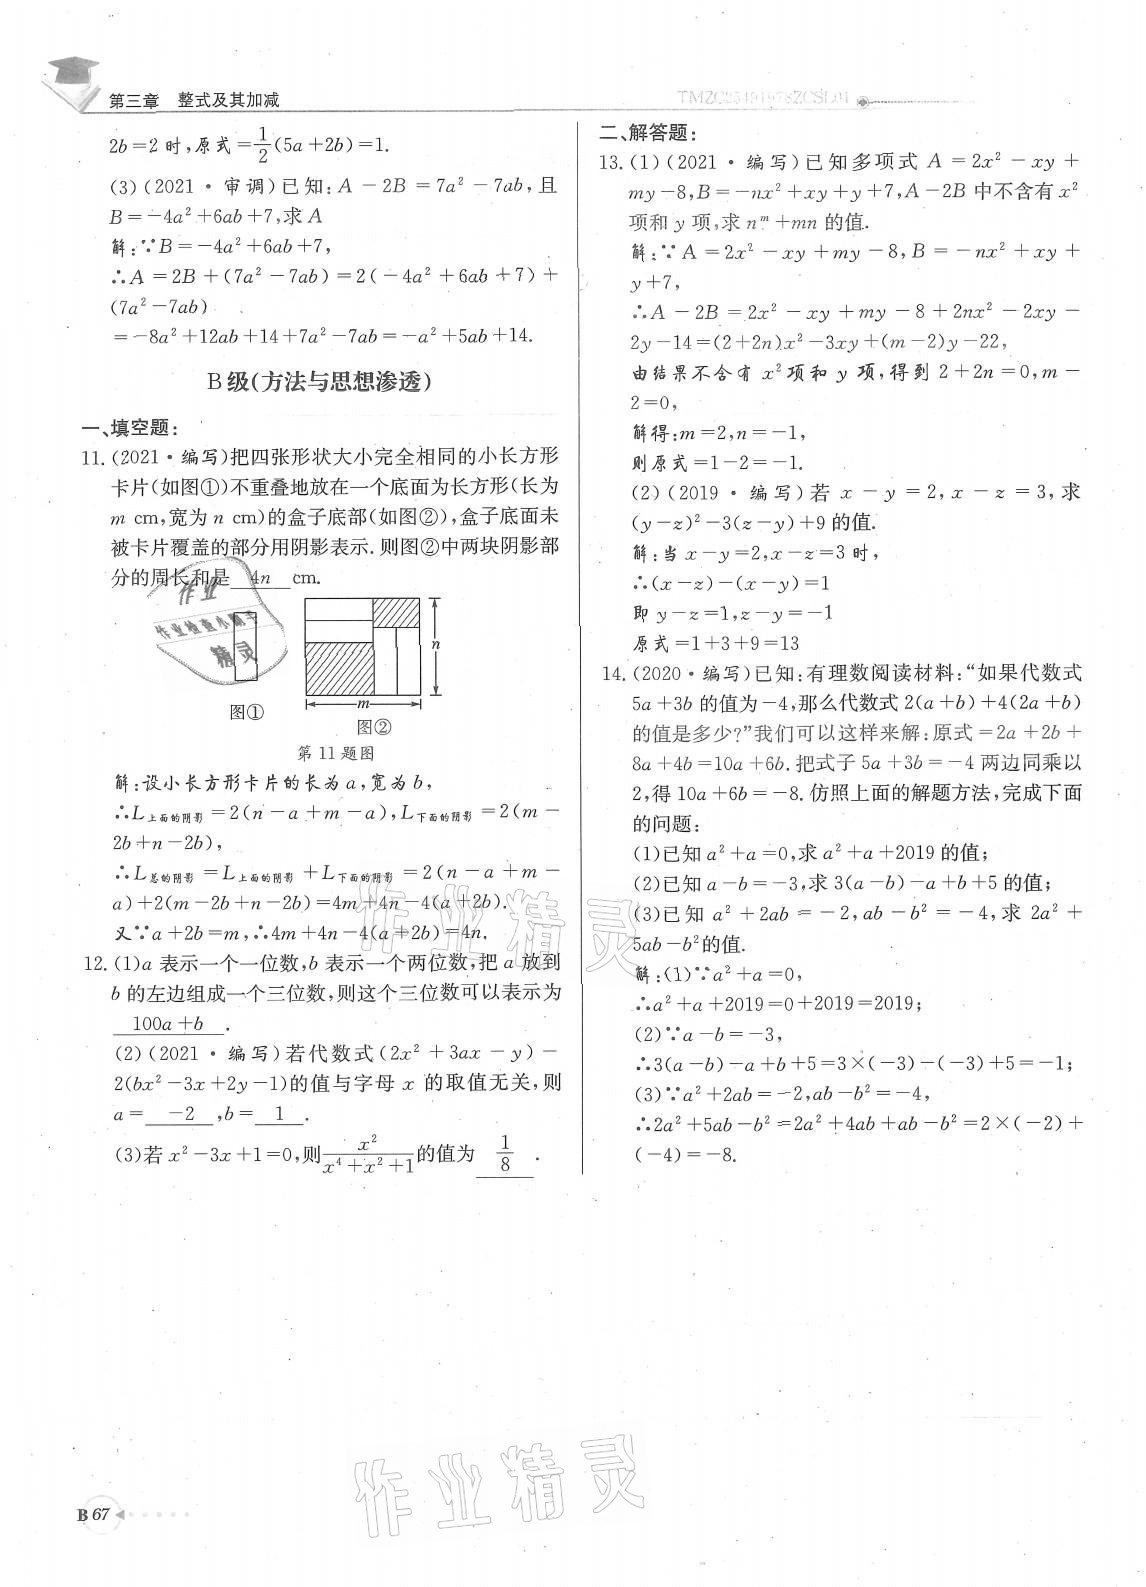 第三章 整式及其加减
TMZC25491978ZCSL01
2b=2 时,原式=1/2(5a+2b)=1.
(3)(2021·审调)已知:A-2B=7a²-7ab,且
B=-4a²+6ab+7,求 A
解:∵B=-4a²+6ab+7,
∴A=2B+(7a²-7ab)=2(-4a²+6ab+7)+
(7a²-7ab)
=-8a²+12ab+14+7a²-7ab=-a²+5ab+14.
B级(方法与思想渗透)
一、填空题:
11.(2021·编写)把四张形状大小完全相同的小长方形
卡片(如图①)不重叠地放在一个底面为长方形(长为
m cm,宽为 n cm)的盒子底部(如图②),盒子底面未
被卡片覆盖的部分用阴影表示.则图②中两块阴影部
分的周长和是 4n cm.
n
m
图①
图②
第 11 题图
解:设小长方形卡片的长为 a,宽为 b,
∴L上面的阴影=2(n-a+m-a),L下面的阴影=2(m-
2b+n-2b),
∴L总的阴影=L上面的阴影+L下面的阴影=2(n-a+m-
a)+2(m-2b+n-2b)=4m+4n-4(a+2b).
又∵a+2b=m,∴4m+4n-4(a+2b)=4n.
12.(1)a 表示一个一位数,b 表示一个两位数,把 a 放到
b 的左边组成一个三位数,则这个三位数可以表示为
100a+b .
(2)(2021·编写)若代数式(2x²+3ax-y)-
2(bx²-3x+2y-1)的值与字母 x 的取值无关,则
a= -2 ,b= 1 .
(3)若 x²-3x+1=0,则x²/(x⁴+x²+1)的值为 1/8 .
二、解答题:
13.(1)(2021·编写)已知多项式 A=2x²-xy+
my-8,B=-nx²+xy+y+7,A-2B 中不含有 x²
项和 y 项,求 nᵐ+mn 的值.
解:∵A=2x²-xy+my-8,B=-nx²+xy+
y+7,
∴A-2B=2x²-xy+my-8+2nx²-2xy-
2y-14=(2+2n)x²-3xy+(m-2)y-22,
由结果不含有 x²项和 y 项,得到 2+2n=0,m-
2=0,
解得:m=2,n=-1,
则原式=1-2=-1.
(2)(2019·编写)若 x-y=2,x-z=3,求
(y-z)²-3(z-y)+9 的值.
解:当 x-y=2,x-z=3 时,
∴(x-z)-(x-y)=1
即 y-z=1,z-y=-1
原式=1+3+9=13
14.(2020·编写)已知:有理数阅读材料:“如果代数式
5a+3b 的值为-4,那么代数式 2(a+b)+4(2a+b)
的值是多少?”我们可以这样来解:原式=2a+2b+
8a+4b=10a+6b.把式子 5a+3b=-4 两边同乘以
2,得 10a+6b=-8.仿照上面的解题方法,完成下面
的问题:
(1)已知 a²+a=0,求 a²+a+2019 的值;
(2)已知 a-b=-3,求 3(a-b)-a+b+5 的值;
(3)已知 a²+2ab=-2,ab-b²=-4,求 2a²+
5ab-b²的值.
解:(1)∵a²+a=0,
∴a²+a+2019=0+2019=2019;
(2)∵a-b=-3,
∴3(a-b)-a+b+5=3×(-3)-(-3)+5=-1;
(3)∵a²+2ab=-2,ab-b²=-4,
∴2a²+5ab-b²=2a²+4ab+ab-b²=2×(-2)+
(-4)=-8.
作业
作业检查小助手
精灵
作业精灵
作业精灵
B 67